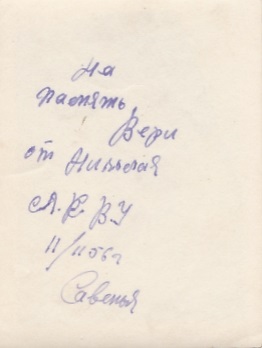 На
память
Вери
от Николая
А. К. В. У
11/II 56 г
Савенья